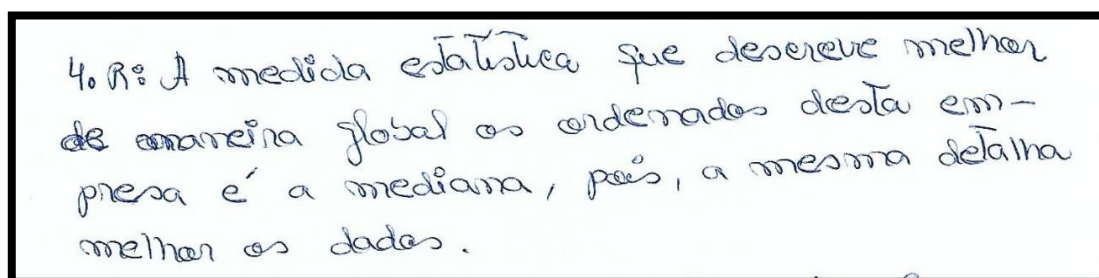 4. R: A medida estatística que descreve melhor
de maneira global os ordenados desta em-
presa é a mediana, pois, a mesma detalha
melhor os dados.